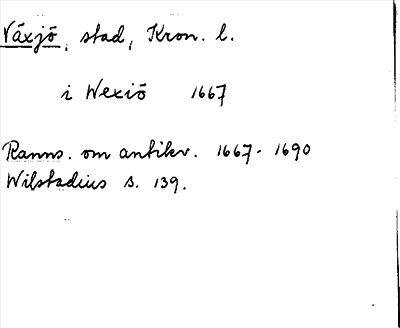 Växjö, stad, Kron. l.
i Wexiö 1667
Ranns. om antikv. 1667-1690
Wilstadius s. 139.